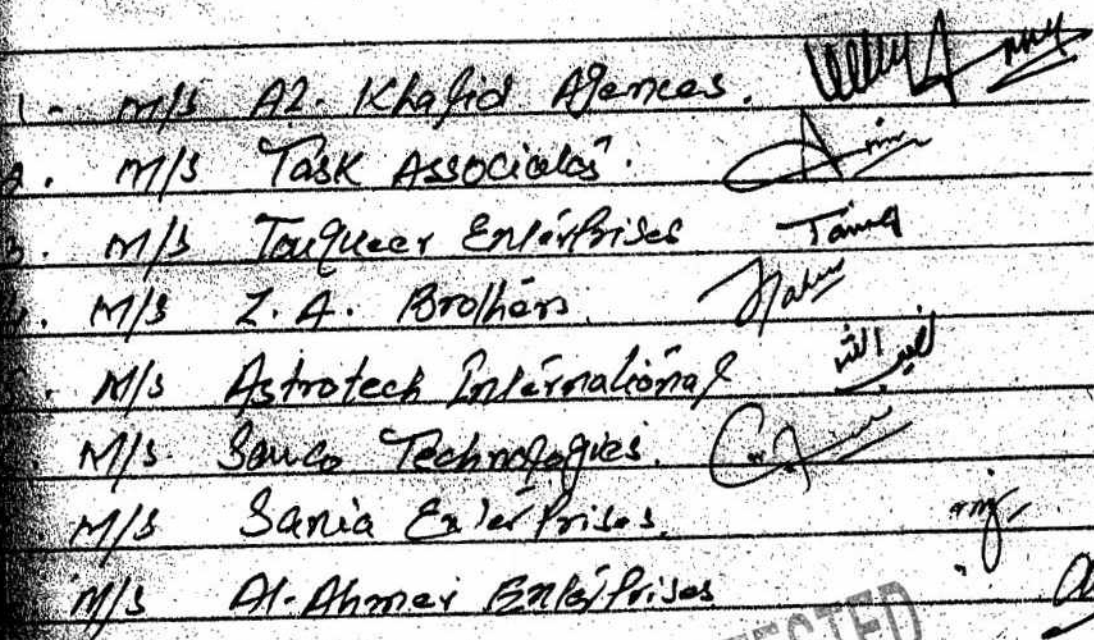 1- M/S Al-Khalid Agences.
2. M/S Task Associates.
3. M/S Touqueer Enterprises Tariq
4. M/S Z.A. Brothers.
M/S Astrotech International
M/S Sauco Technologies.
M/S Sania Enterprises.
M/S Al-Ahmer Enterprises